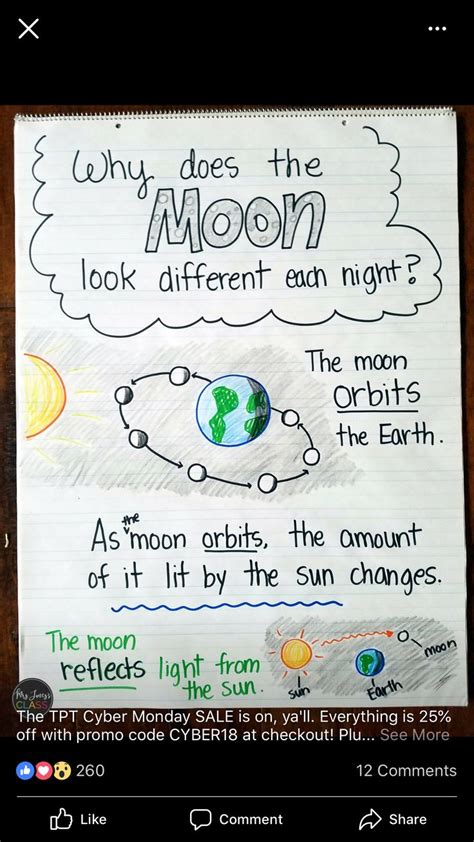 Why does the
Moon
look different each night?
The moon
orbits
the Earth.
As the moon orbits, the amount
of it lit by the sun changes.
The moon
reflects light from
the sun.
sun
Earth
moon
Mrs. Jones's
CLASS
The TPT Cyber Monday SALE is on, ya'll. Everything is 25%
off with promo code CYBER18 at checkout! Plu... See More
260
12 Comments
Like
Comment
Share